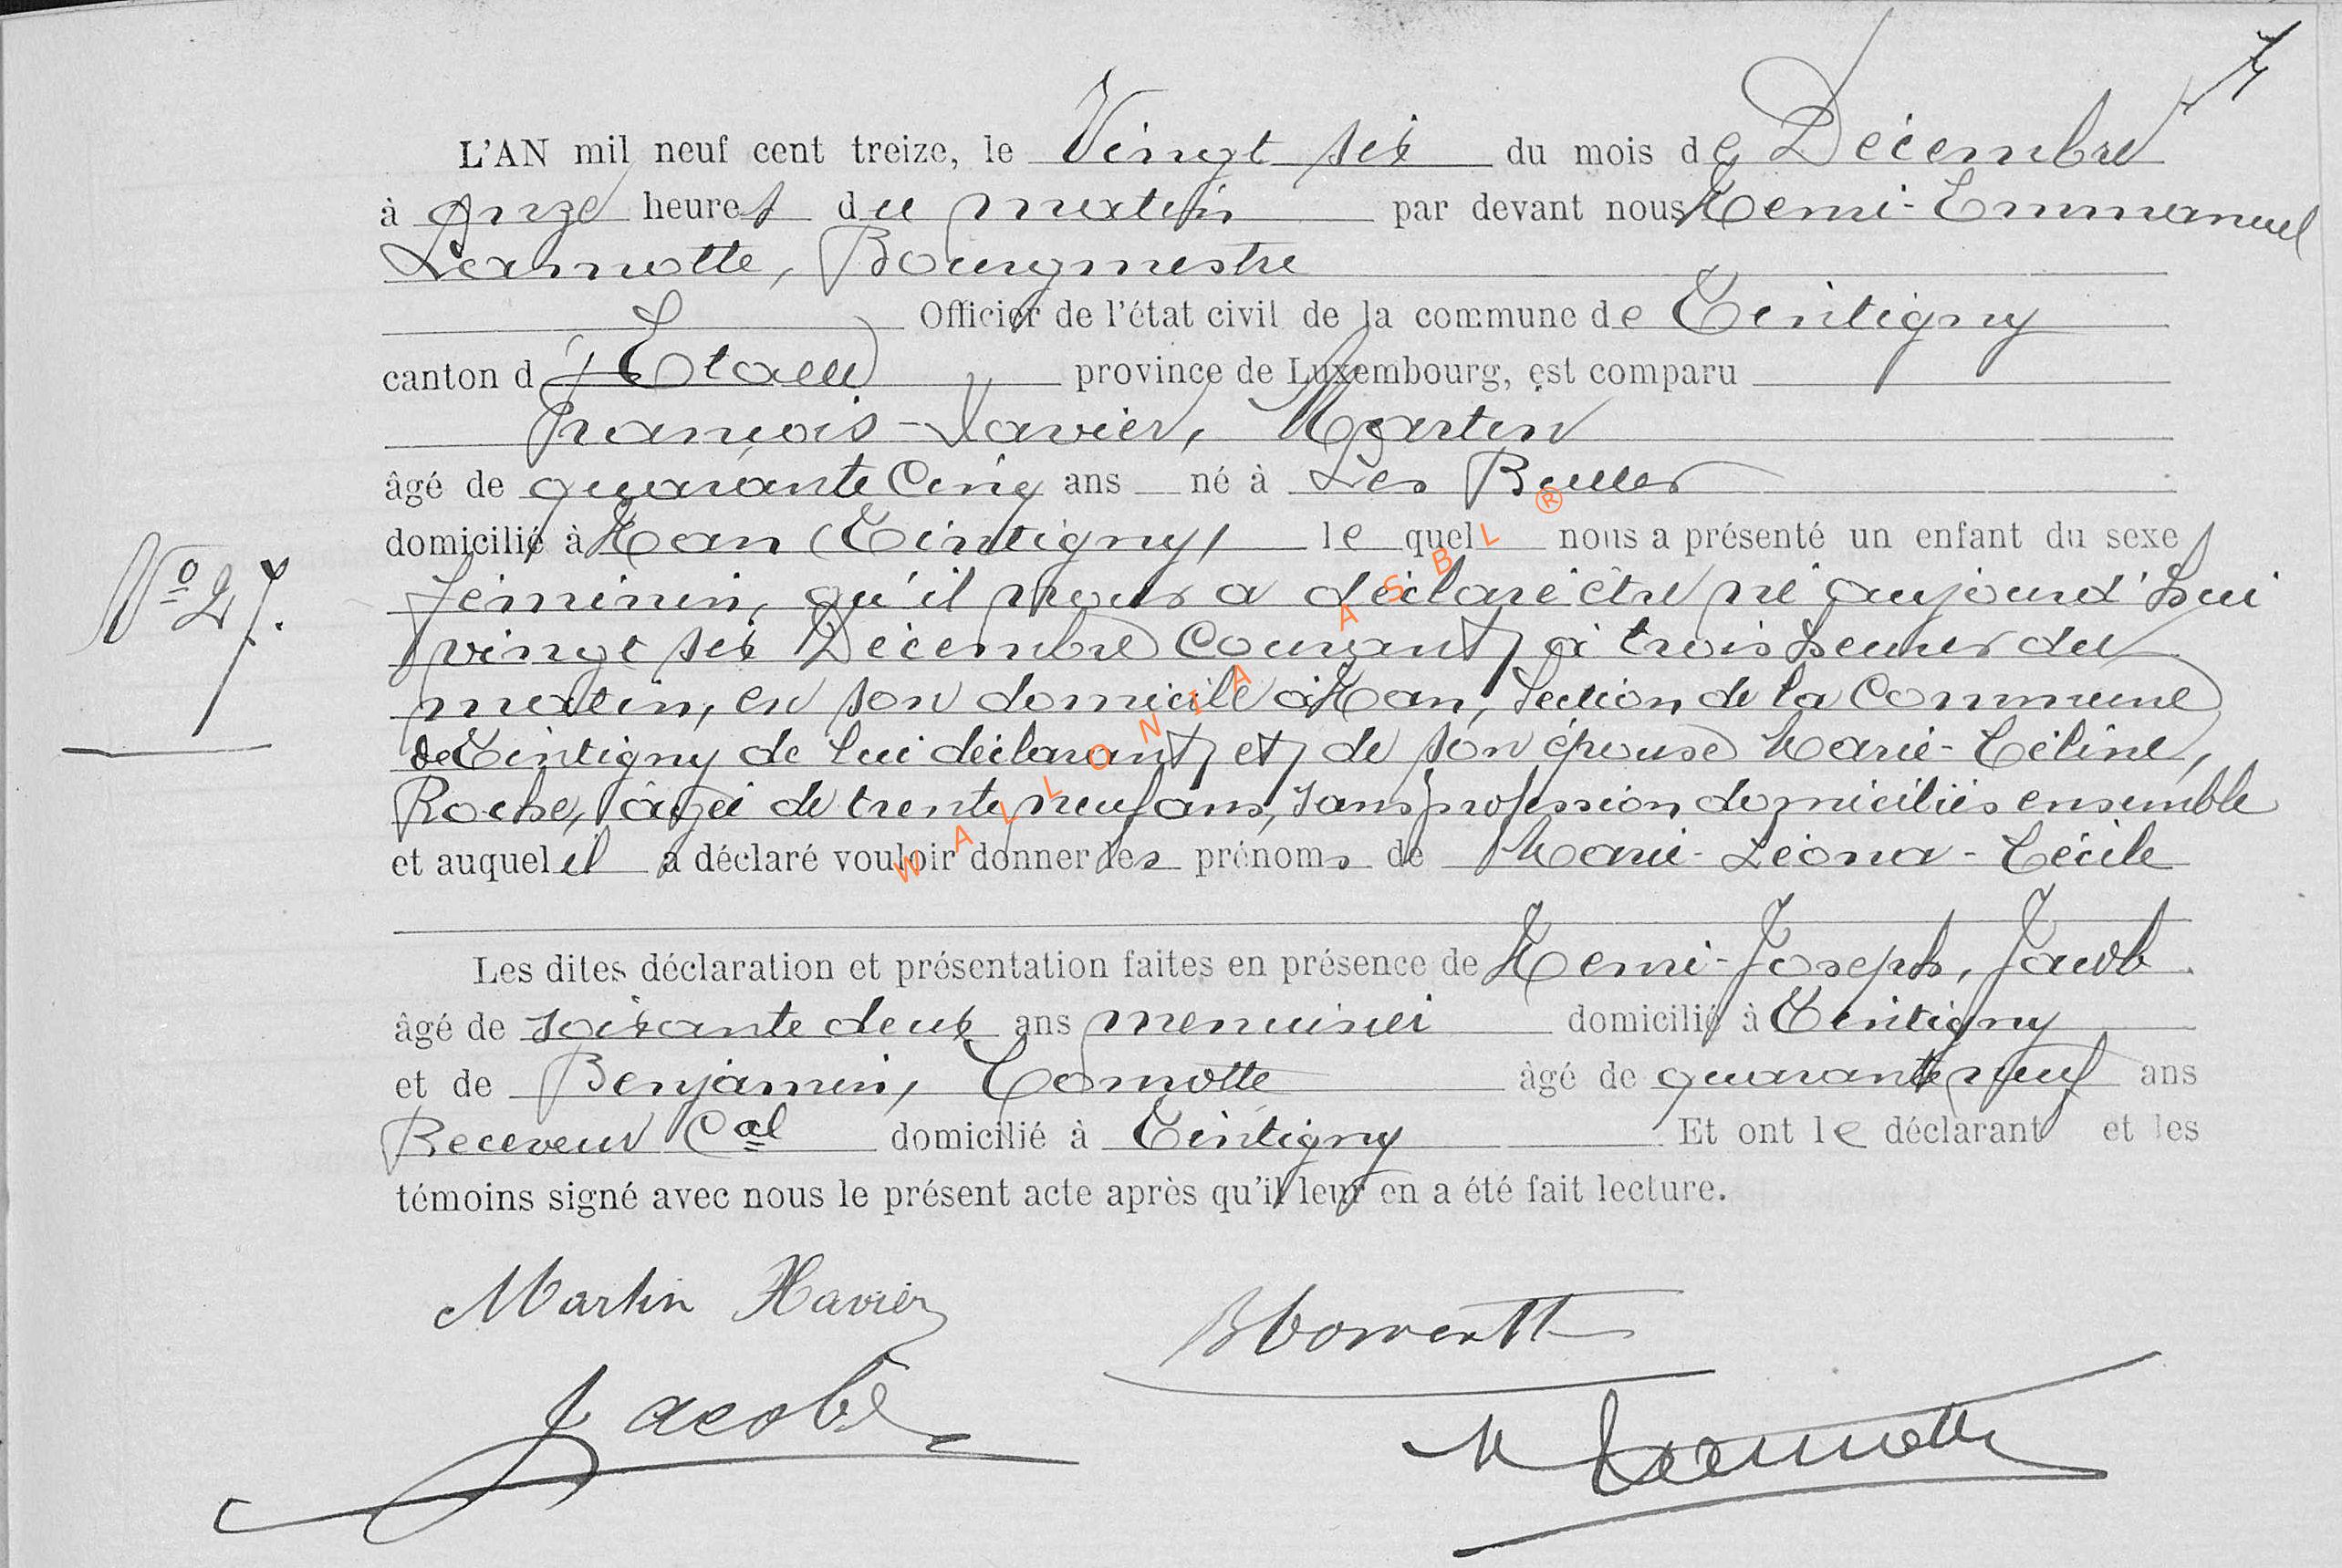 7
L'AN mil neuf cent treize, le Vingt six du mois de Décembre
à onze heures du matin par devant nous Henri-Emmanuel
Lamotte, Bourgmestre
Officier de l'état civil de la commune de Tintigny
canton d'Etalle province de Luxembourg, est comparu
François-Xavier, Martin
âgé de quarante cinq ans né à Les Bulles
domicilié à Han (Tintigny) le quel nous a présenté un enfant du sexe
féminin, qu'il nous a déclaré être né aujourd'hui
vingt six Décembre courant, à trois heures du
matin, en son domicile à Han, section de la Commune
de Tintigny de lui déclarant et de son épouse Marie-Céline,
Roche, âgée de trente neuf ans, sans profession domiciliés ensemble
et auquel il a déclaré vouloir donner les prénoms de Marie-Léona-Cécile
Nº 27.
Les dites déclaration et présentation faites en présence de Henri-Joseph, Jacob
âgé de soixante deux ans menuisier domicilié à Tintigny
et de Benjamin, Comotte âgé de quarante neuf ans
Receveur Cal domicilié à Tintigny Et ont le déclarant et les
témoins signé avec nous le présent acte après qu'il leur en a été fait lecture.
Martin Xavier
Jacob
H Lamotte
WALLONIA ASBL ®